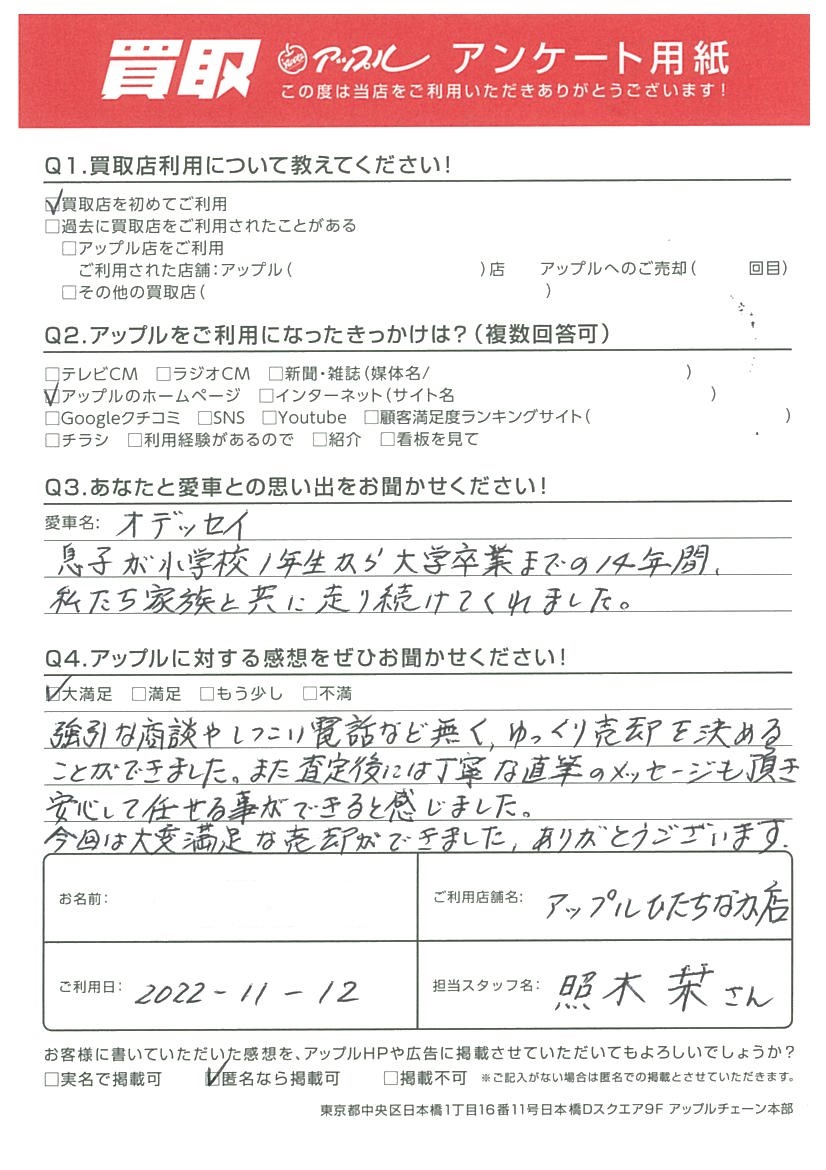 買取 Apple アップル アンケート用紙
この度は当店をご利用いただきありがとうございます!
Q1.買取店利用について教えてください!
☑買取店を初めてご利用
□過去に買取店をご利用されたことがある
□アップル店をご利用
ご利用された店舗:アップル( )店 アップルへのご売却( 回目)
□その他の買取店( )
Q2.アップルをご利用になったきっかけは?(複数回答可)
□テレビCM □ラジオCM □新聞・雑誌(媒体名/ )
☑アップルのホームページ □インターネット(サイト名 )
□Googleクチコミ □SNS □Youtube □顧客満足度ランキングサイト( )
□チラシ □利用経験があるので □紹介 □看板を見て
Q3.あなたと愛車との思い出をお聞かせください!
愛車名: オデッセイ
息子が小学校1年生から大学卒業までの14年間、
私たち家族と共に走り続けてくれました。
Q4.アップルに対する感想をぜひお聞かせください!
☑大満足 □満足 □もう少し □不満
強引な商談やしつこい電話など無く、ゆっくり売却を決める
ことができました。また査定後には丁寧な直筆のメッセージも頂き
安心して任せる事ができると感じました。
今回は大変満足な売却ができました、ありがとうございます.
お名前: ご利用店舗名: アップルひたちなか店
ご利用日: 2022-11-12 担当スタッフ名: 照木 栞さん
お客様に書いていただいた感想を、アップルHPや広告に掲載させていただいてもよろしいでしょうか?
□実名で掲載可 ☑匿名なら掲載可 □掲載不可 ※ご記入がない場合は匿名での掲載とさせていただきます。
東京都中央区日本橋1丁目16番11号日本橋Dスクエア9F アップルチェーン本部